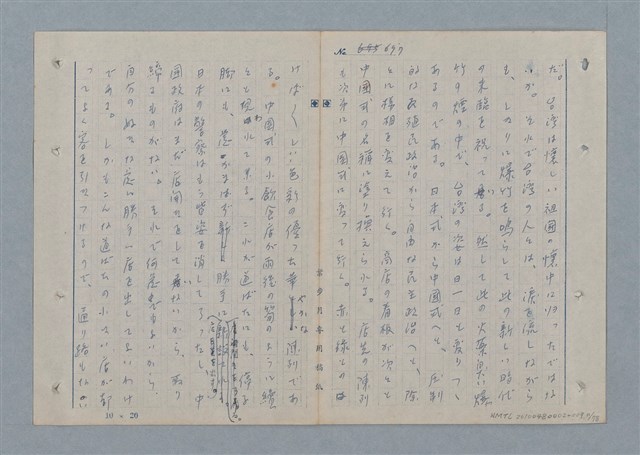 No. 697
だ。台湾は懐しい祖国の懐中に帰ったではな
いか。それで台湾の人々は、涙を流しながら
も、しきりに爆竹を鳴らして此の新しい時代
の来臨を祝って居る。然して此の火薬臭い爆
竹の煙の中で、台湾の姿は日一日と変りつゝ
あるのである。日本式から中国式へと、圧制
的な植民政治から自由な民主政治へと、
とに様相を変えて行く。商店の看板が次々と
中国式の名称に塗り換えられる。店先の陳列
も次第に中国式に変って行く。赤と緑との
けば〱しい色彩の優った華やかな陳列であ
る。中国式の小飲食店が雨後の筍のように続
々と現われて来る。これが道ばたにも、停子
脚にも、
日本の警察はもう皆姿を消して了ったし、中
国政府はまだ店開きをして居ないから、取り
締るものがない。それで何處でもよいから、
自分の好きな處に勝手に店を出してよいわけ
である。しかもこんな道ばたの小さい店が却
ってよく客を引きつけるので、通り路もない
葉步月専用稿紙
10 × 20